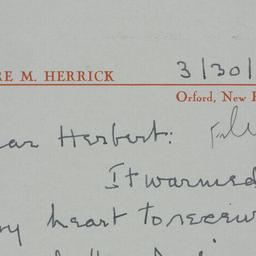 RE M. HERRICK 3/30/
Orford, New H
ear Herbert: File
It warmed
my heart to receive